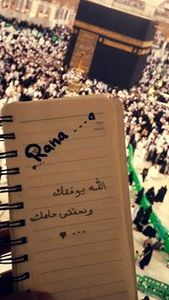 Rana ... a
الله يوفقك
وتحققي حلمك